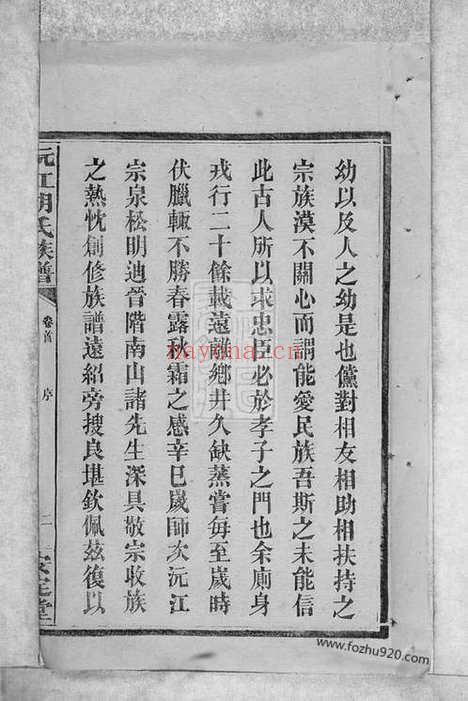 幼以反人之幼是也儻對相友相助相扶持之
宗族漠不關心而謂能愛民族吾斯之未能信
此古人所以求忠臣必於孝子之門也余廁身
戎行二十餘載遠離鄉井久缺蒸嘗每至歲時
伏臘輒不勝春露秋霜之感辛巳歲師次沅江
宗泉松明迪晉階南山諸先生深具敬宗收族
之熱忱創修族譜遠紹旁搜良堪欽佩茲復以
沅江胡氏族譜
卷首
序
二
安定堂
nayona.cn
www.fozhu920.com